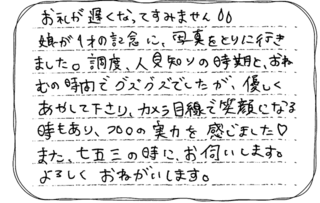 お礼が遅くなってすみません
娘が1才の記念に、写真をとりに行き
ました。調度、人見知りの時期と、おね
むの時間でグズグズでしたが、優しく
あやして下さり、カメラ目線で笑顔になる
時もあり、プロの実力を感じました♡
また、七五三の時に、お伺いします。
よろしく おねがいします。